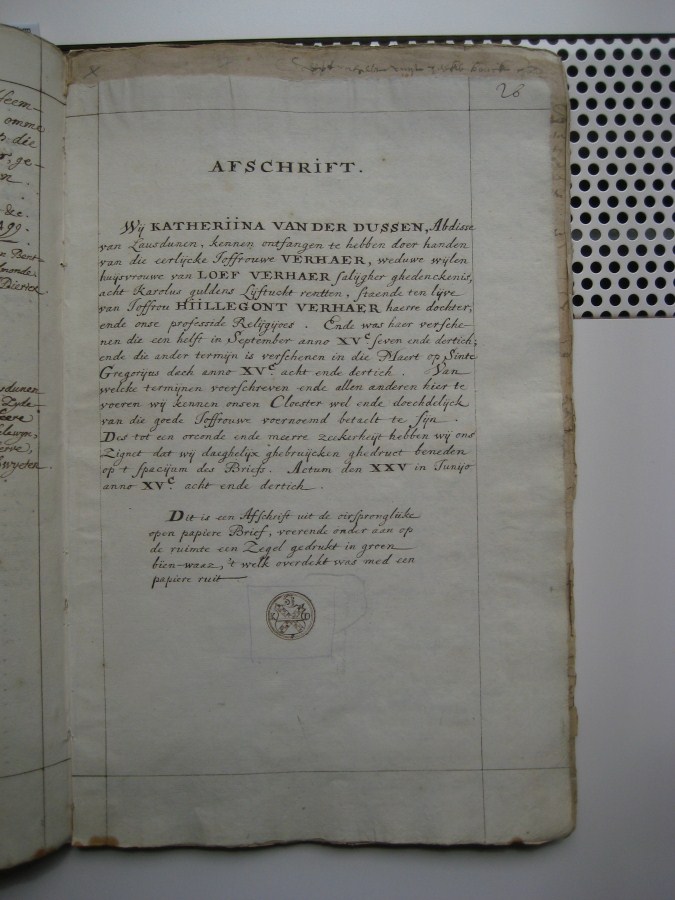 26
AFSCHRIFT.
Wij KATHERIINA VAN DER DUSSEN, Abdisse
van Lausdunen, kennen ontfangen te hebben doer handen
van die eerlijcke Joffrouwe VERHAER, weduwe wijlen
huijsvrouwe van LOEF VERHAER saligher ghedenckenis,
acht Karolus guldens Lijftucht rentten, staende ten lijve
van Joffrou HIILLEGONT VERHAER haerre dochter,
ende onse professide Religijoes. Ende was haer versche-
nen die een helft in September anno XVc. seven ende dertich;
ende die ander termijn is verschenen in die Maert op Sinte
Gregorijus dach anno XVc. acht ende dertich. Van
welcke termijnen voerschreven ende allen anderen hier te
voeren wij kennen onsen Cloester wel ende doechdelijck
van die goede Joffrouwe voernoemd betaelt te sijn.
Des tot een orconde ende meerre zeekerheijt hebben wij ons
Zignet dat wij daeghelijx ghebruijcken ghedruct beneden
op 't spacijum des Briefs. Actum den XXV in Junijo
anno XVc. acht ende dertich.
Dit is een Afschrift uit de oirspronglijke
open papiere Brief, voerende onder aan op
de ruimte een Zegel gedrukt in groen
bien-waaz, 't welk overdekt was med een
papiere ruit